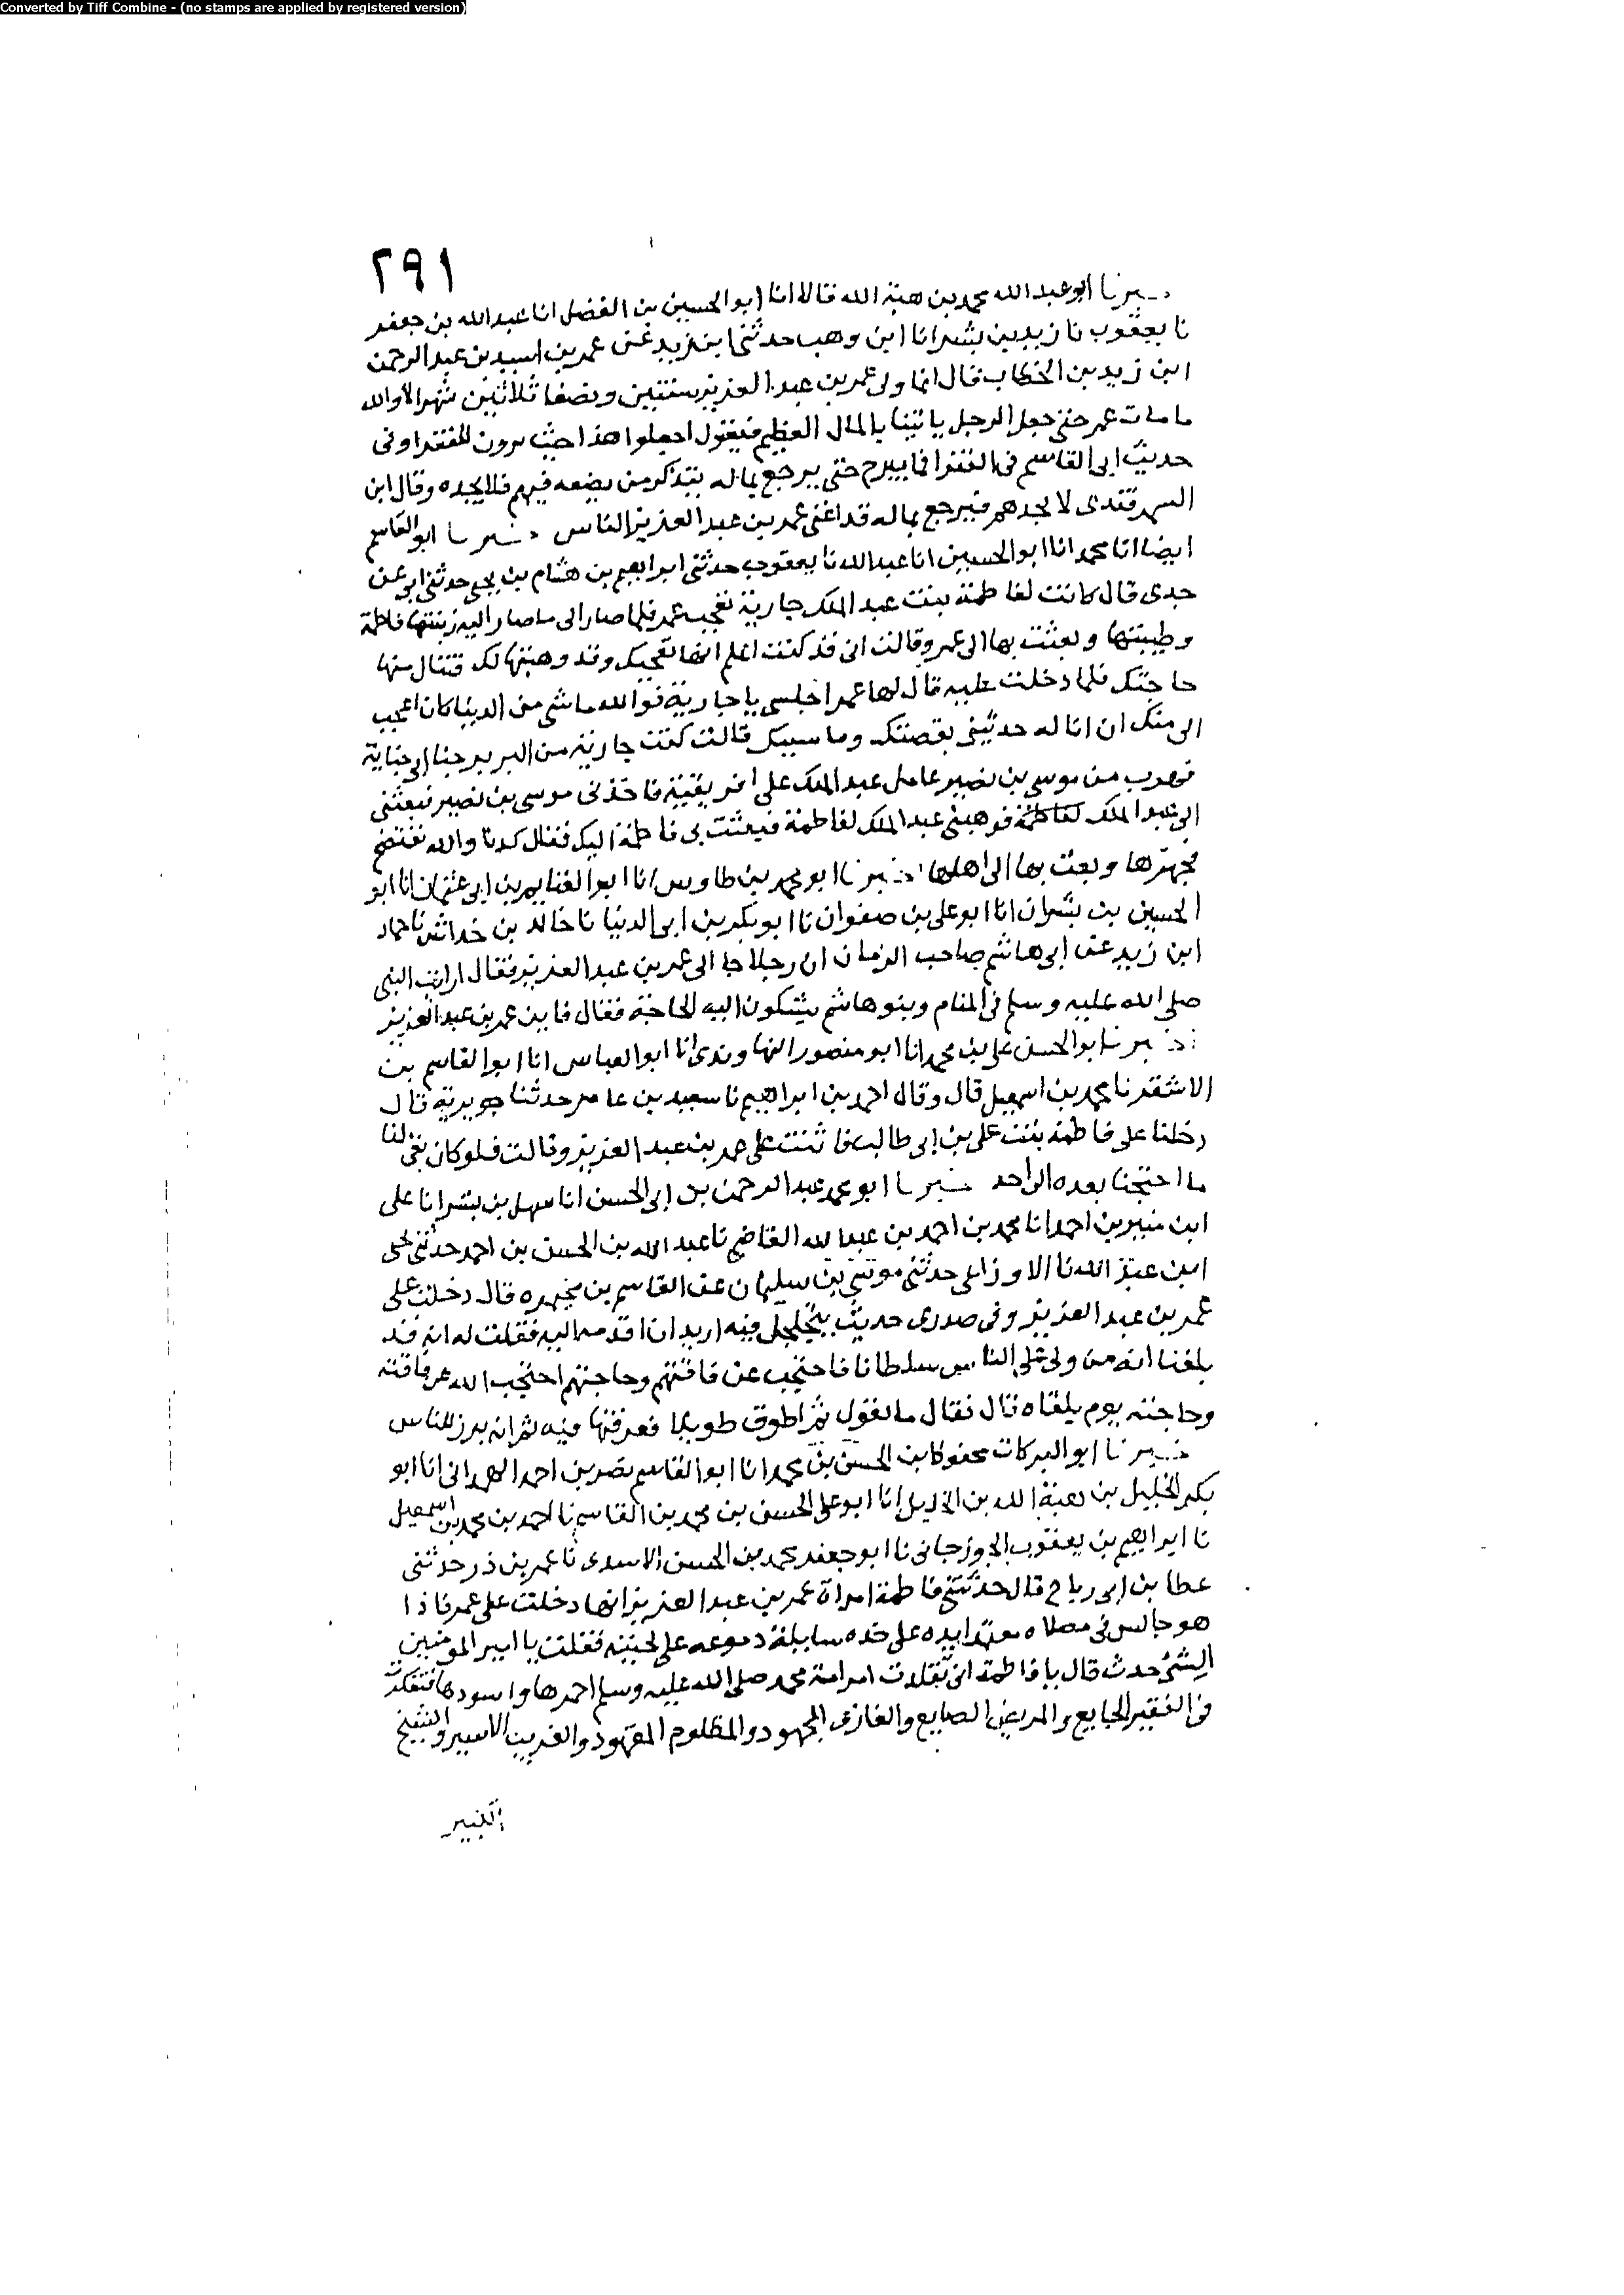 Converted by Tiff Combine - (no stamps are applied by registered version)
٢٩١
ابو عبدالله محمد بن هبة الله قالا انا ابو الحسين بن الفضل انا عبدالله بن جعفر
نا يعقوب نا زيد بن بشر انا ابن وهب حدثنى ابن زيد عن عمر بن اسيد بن عبد الرحمن
ابن زيد بن الخطاب قال انما ولى عمر بن عبد العزيز سنتين ونصفا ثلاثين شهرا لا والله
ما مات عمر حتى جعل الرجل ياتينا بالمال العظيم فيقول اجعلوا هذا حيث ترون للفقرا وفى
حديث ابى القاسم فى الفقرا فما يبرح حتى يرجع بماله يتذكر من يضعه فيهم فلا يجده وقال ابن
السمرقندى لا يجدهم فيرجع بماله قد اغنى عمر بن عبد العزيز الناس ابو القاسم
ايضا انا محمد انا ابو الحسين انا عبدالله نا يعقوب حدثنى ابراهيم بن هشام بن يحيى حدثنى ابى عن
جدى قال كانت لفاطمة بنت عبد الملك جارية تعجب عمر فلما صار الى ما صار اليه زينتها فاطمة
وطيبتها وبعثت بها الى عمر وقالت انى قد كنت اعلم انها تعجبك وقد وهبتها لك فتنال منها
حاجتك فلما دخلت عليه قال لها عمر اجلسى يا جارية فوالله ما شى من الدنيا كان اعجب
الى منك ان اناله حدثينى بقصتك وما سبيك قالت كنت جارية من البربر جنا ابى جناية
فهرب من موسى بن نصير عامل عبد الملك على افريقية فاخذنى موسى بن نصير فبعثنى
الى عبد الملك لفاطمة فوهبنى عبد الملك لفاطمة فبعثت بى فاطمة اليك فقال كدنا والله نفتضح
فجهزها وبعث بها الى اهلها ابو محمد بن طاوس انا ابو الغنايم بن ابى عثمان انا ابو
الحسين بن بشران انا ابو على بن صفوان نا ابو بكر بن ابى الدنيا نا خالد بن خداش نا حماد
ابن زيد عن ابى هاشم صاحب الرمان ان رجلا جا الى عمر بن عبد العزيز فقال ارايت النبى
صلى الله عليه وسلم فى المنام وبنو هاشم يشكون اليه الحاجة فقال فاين عمر بن عبد العزيز
ابو الحسن على بن محمد انا ابو منصور النهاوندى انا ابو العباس انا ابو القاسم بن
الاشقر نا محمد بن اسمعيل قال وقال احمد بن ابراهيم نا سعيد بن عامر حدثنا جويرية قال
دخلنا على فاطمة بنت على بن ابى طالب فاثنت على عمر بن عبد العزيز وقالت فلو كان بقى لنا
ما احتجنا بعده الى احد ابو محمد عبد الرحمن بن ابى الحسن انا سهل بن بشر انا على
ابن منير بن احمد انا محمد بن احمد بن عبدالله القاضى نا عبدالله بن الحسن بن احمد حدثنى يحيى
ابن عبد الله نا الاوزاعى حدثنى موسى بن سليمان عن القاسم بن مخيمره قال دخلت على
عمر بن عبد العزيز وفى صدرى حديث يتجلجل فيه اريد ان اقدمه اليه فقلت له انه قد
بلغنا انه من ولى على الناس سلطانا فاحتجب عن فاقتهم وحاجتهم احتجب الله عن فاقته
وحاجته يوم يلقاه قال فقال ما تقول ثم اطرق طويلا فعرفتها فيه ثم انه برز للناس
ابو البركات محفوظ بن الحسن بن محمد انا ابو القاسم نصر بن احمد الهمدانى انا ابو
بكر الخليل بن هبة الله بن الخليل انا ابو على الحسن بن محمد بن القاسم نا احمد بن محمد بن اسمعيل
نا ابراهيم بن يعقوب الجوزجانى نا ابو جعفر محمد بن الحسن الاسدى نا عمر بن ذر حدثنى
عطا بن ابى رباح قال حدثتنى فاطمة امراة عمر بن عبد العزيز انها دخلت على عمر فاذا
هو جالس فى مصلاه معتمدا يده على خده سايلة دموعه على لحيته فقلت يا امير المومنين
الشئ حدث قال يا فاطمة انى تقلدت امر امة محمد صلى الله عليه وسلم احمرها واسودها فتفكرت
فى الفقير الجايع والمريض الضايع والغازى المجهود والمظلوم المقهور والغريب الاسير والشيخ
الكبير